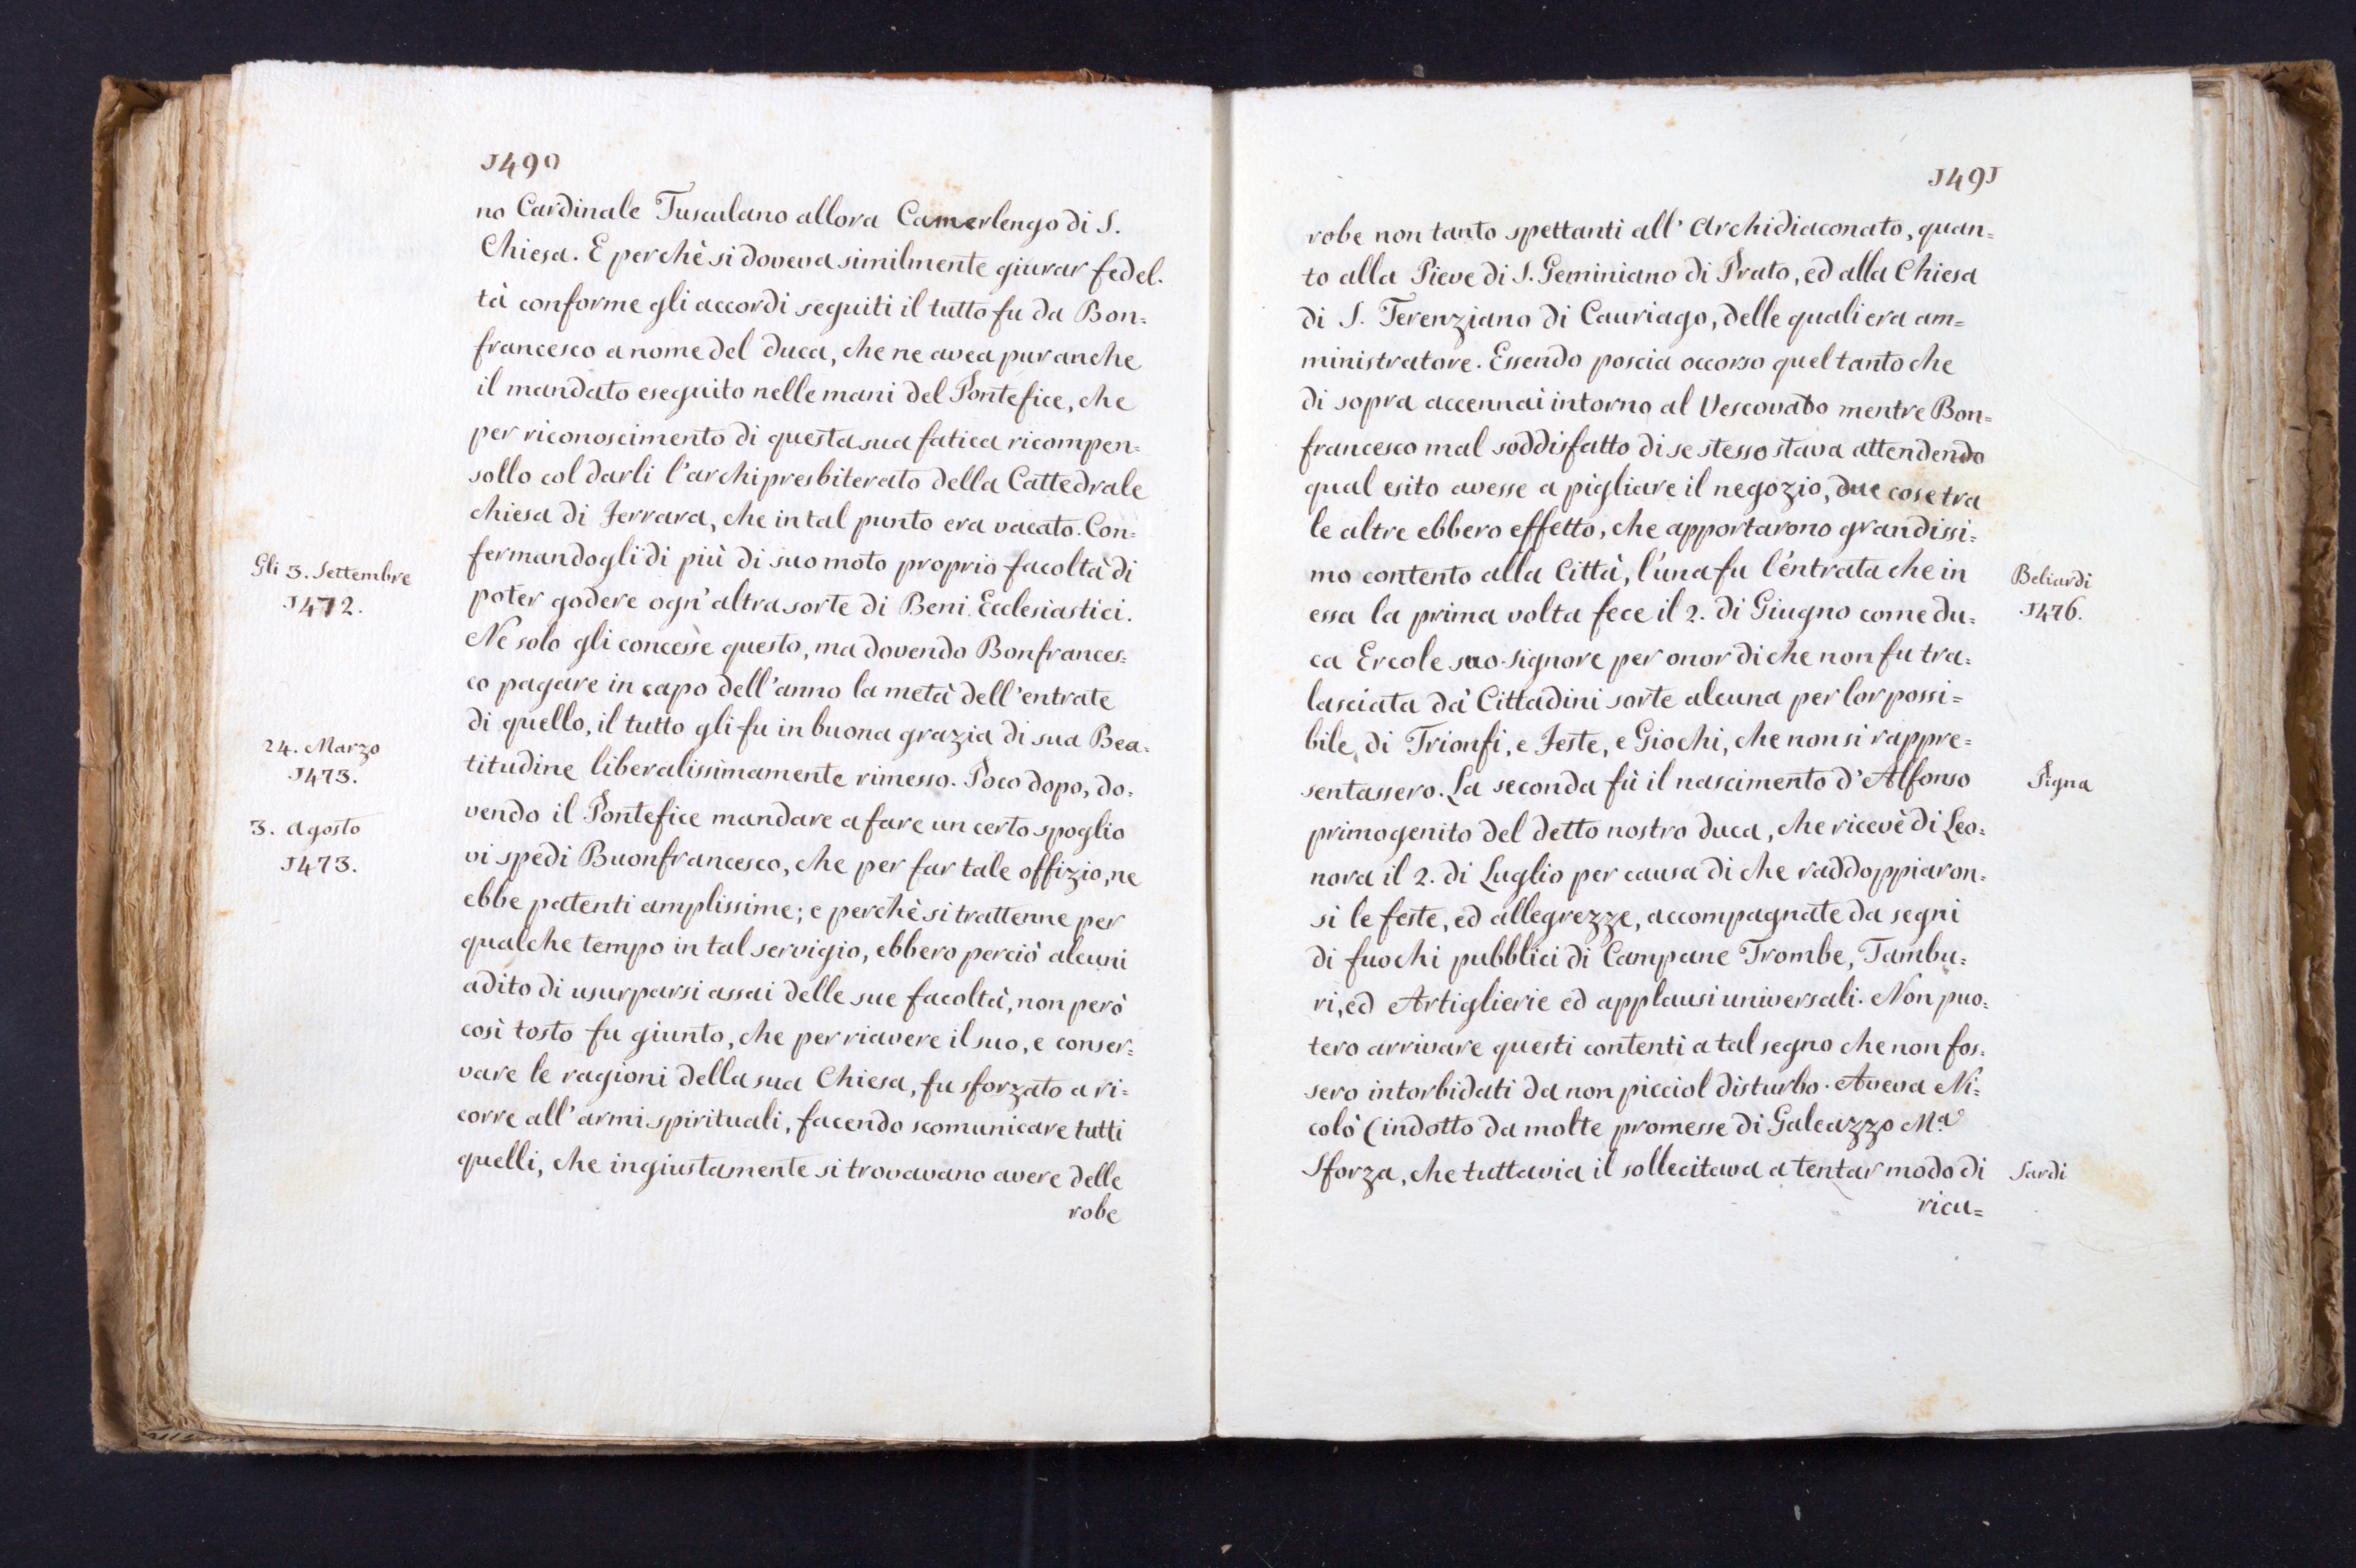 1490
no Cardinale Tusculano allora Camerlengo di S.
Chiesa. E perchè si doveva similmente giurar fedel.
tà conforme gli accordi seguiti il tutto fu da Bon=
francesco a nome del duca, che ne avea pur anche
il mandato eseguito nelle mani del Pontefice, che
per riconoscimento di questa sua fatica ricompen=
sollo col darli l'archipresbiterato della Cattedrale
chiesa di Ferrara, che in tal punto era vacato. Con=
fermandogli di più di suo moto proprio facoltà di
poter godere ogn'altra sorte di Beni Ecclesiastici.
Ne solo gli concesse questo, ma dovendo Bonfrances=
co pagare in capo dell'anno la metà dell'entrate
di quello, il tutto gli fu in buona grazia di sua Bea=
titudine liberalissimamente rimesso. Poco dopo, do=
vendo il Pontefice mandare a fare un certo spoglio
vi spedi Buonfrancesco, che per far tale offizio, ne
ebbe patenti amplissime; e perchè si trattenne per
qualche tempo in tal servigio, ebbero perciò alcuni
adito di usurparsi assai delle sue facoltà, non però
così tosto fu giunto, che per riavere il suo, e conser=
vare le ragioni della sua Chiesa, fu sforzato a ri=
corre all'armi spirituali, facendo scomunicare tutti
quelli, che ingiustamente si trovavano avere delle
robe
Gli 3. Settembre
1472.
24. Marzo
1473.
3. Agosto
1473.
1491
robe non tanto spettanti all'Archidiaconato, quan=
to alla Pieve di S. Geminiano di Prato, ed alla Chiesa
di S. Terenziano di Cauriago, delle quali era am=
ministratore. Essendo poscia occorso quel tanto che
di sopra accennai intorno al Vescovato mentre Bon=
francesco mal soddisfatto di se stesso stava attendendo
qual esito avesse a pigliare il negozio, due cose tra
le altre ebbero effetto, che apportarono grandissi=
mo contento alla Città, l'una fu l'entrata che in
essa la prima volta fece il 2. di Giugno come du=
ca Ercole suo signore per onor di che non fu tra=
lasciata dà Cittadini sorte alcuna per lor possi=
bile, di Trionfi, e Feste, e Giochi, che non si rappre=
sentassero. La seconda fù il nascimento d'Alfonso
primogenito del detto nostro duca, che ricevè di Leo=
nora il 2. di Luglio per causa di che raddoppiaron=
si le feste, ed allegrezze, accompagnate da segni
di fuochi pubblici di Campane Trombe, Tambu=
ri, ed Artiglierie ed applausi universali. Non puo=
tero arrivare questi contenti a tal segno che non fos=
sero intorbidati da non picciol disturbo. Aveva Ni=
colò (indotto da molte promesse di Galeazzo Mᵃ
Sforza, che tuttavia il sollecitava a tentar modo di
ricu=
Beliardi
1476.
Pigna
Sardi